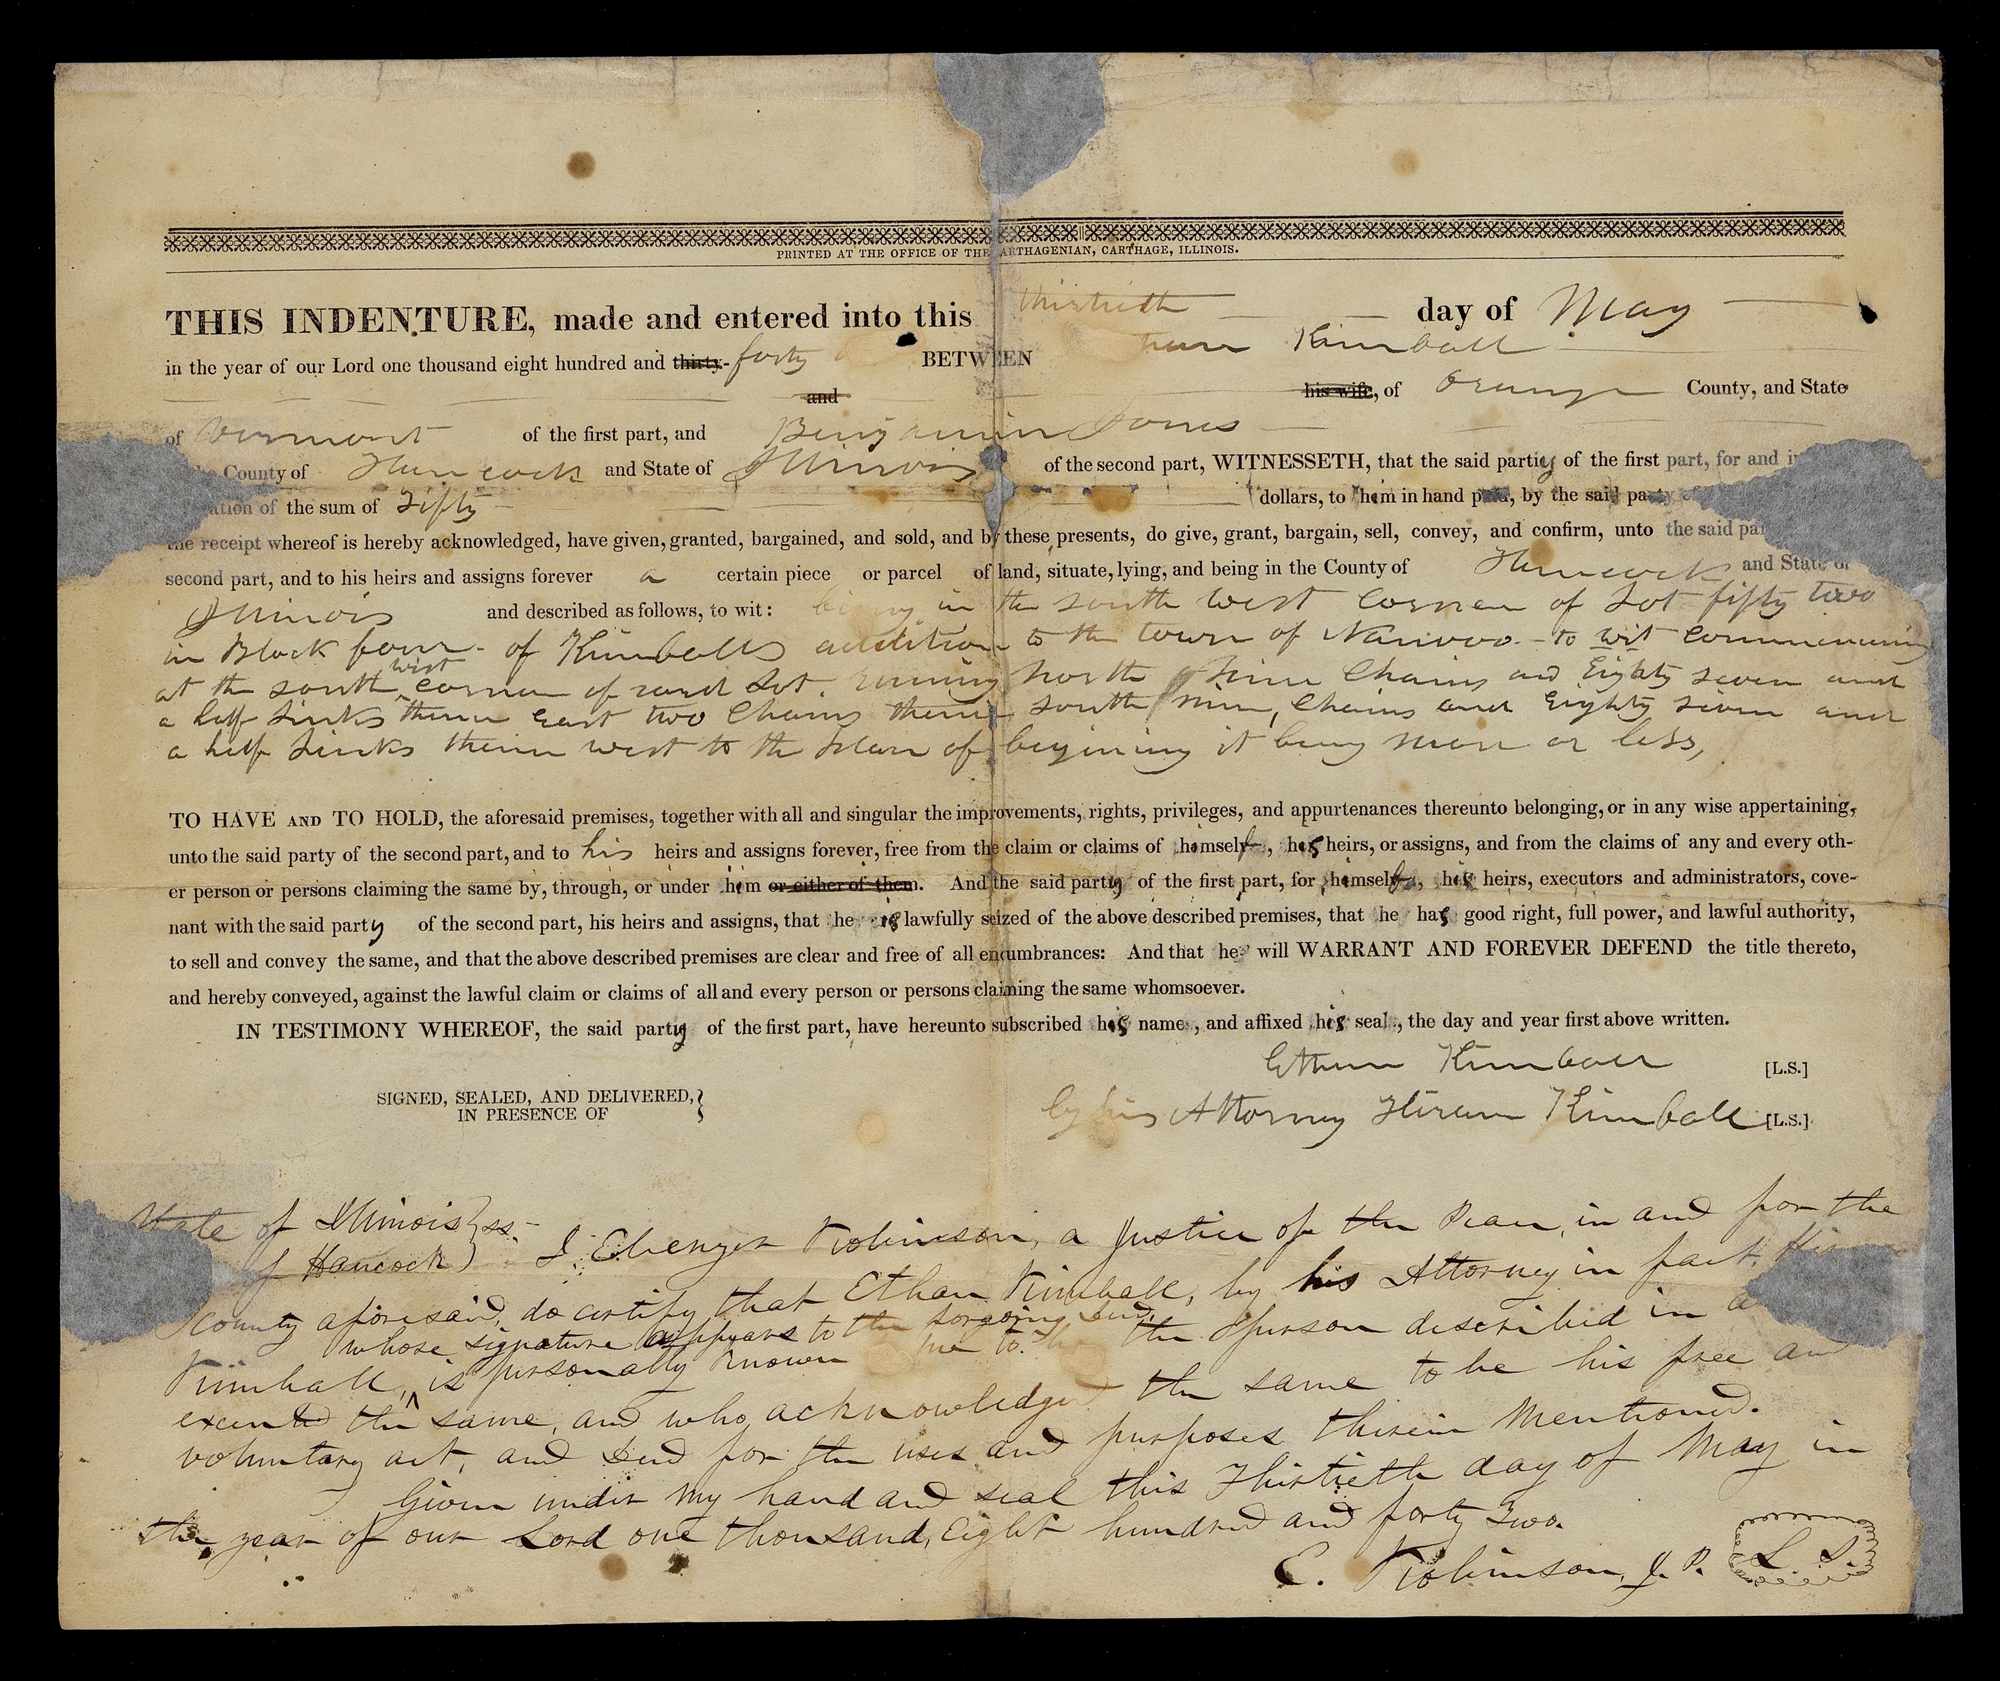 PRINTED AT THE OFFICE OF THE ARTHAGENIAN, CARTHAGE, ILLINOIS.
THIS INDENTURE, made and entered into this thirtieth day of May
in the year of our Lord one thousand eight hundred and thirty- forty BETWEEN Kimball
and his wife, of Orange County, and State
of Vermont of the first part, and Benjamin Jones
County of Hancock and State of Illinois of the second part, WITNESSETH, that the said party of the first part, for and in
ation of the sum of Fifty dollars, to him in hand paid, by the said party of
the receipt whereof is hereby acknowledged, have given, granted, bargained, and sold, and by these presents, do give, grant, bargain, sell, convey, and confirm, unto the said par
second part, and to his heirs and assigns forever a certain piece or parcel of land, situate, lying, and being in the County of Hancock and State of
Illinois and described as follows, to wit: being in the south west corner of Lot fifty two
in Block four of Kimballs addition to the town of Nauvoo - to wit commencing
at the south west corner of said Lot. runing north Nine Chains and Eighty seven and
a half Links thence East two Chains thence south nine Chains and Eighty seven and
a half Links thence west to the place of begining it being more or less,
TO HAVE AND TO HOLD, the aforesaid premises, together with all and singular the improvements, rights, privileges, and appurtenances thereunto belonging, or in any wise appertaining,
unto the said party of the second part, and to his heirs and assigns forever, free from the claim or claims of himself, his heirs, or assigns, and from the claims of any and every oth-
er person or persons claiming the same by, through, or under him or either of them. And the said party of the first part, for himself, his heirs, executors and administrators, cove-
nant with the said party of the second part, his heirs and assigns, that he is lawfully seized of the above described premises, that he has good right, full power, and lawful authority,
to sell and convey the same, and that the above described premises are clear and free of all encumbrances: And that he will WARRANT AND FOREVER DEFEND the title thereto,
and hereby conveyed, against the lawful claim or claims of all and every person or persons claiming the same whomsoever.
IN TESTIMONY WHEREOF, the said party of the first part, have hereunto subscribed his name, and affixed his seal, the day and year first above written.
Ethan Kimball [L.S.]
SIGNED, SEALED, AND DELIVERED, }
IN PRESENCE OF
by his Attorney Hiram Kimball [L.S.]
State of Illinois } ss.
of Hancock ) I Ebenezer Robinson, a Justice of the Peace, in and for the
County aforesaid, do certify that Ethan Kimball, by his Attorney in fact. Hi
whose signature appears to the forgoing deed,
Kimball, is personally known me to the person described in
executed the same, and who acknowledged the same to be his free and
voluntary act, and deed for the uses and purposes therein Mentioned.
Given under my hand and seal this Thirtieth day of May in
the year of our Lord one thousand, Eight hundred and forty Two.
E. Robinson, J. P. L. S.